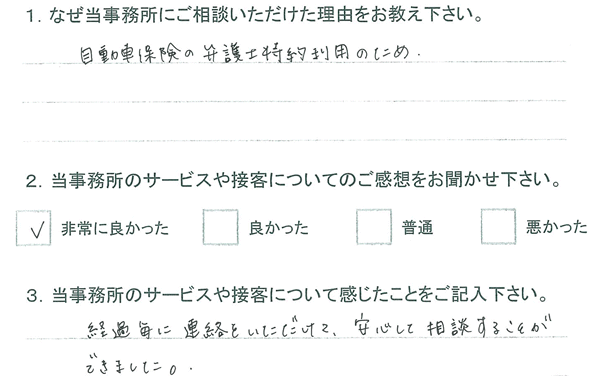 1. なぜ当事務所にご相談いただけた理由をお教え下さい。
自動車保険の弁護士特約利用のため.
2. 当事務所のサービスや接客についてのご感想をお聞かせ下さい。
✓ 非常に良かった 良かった 普通 悪かった
3. 当事務所のサービスや接客について感じたことをご記入下さい。
経過毎に連絡をいただけて、安心して相談することが
できました。